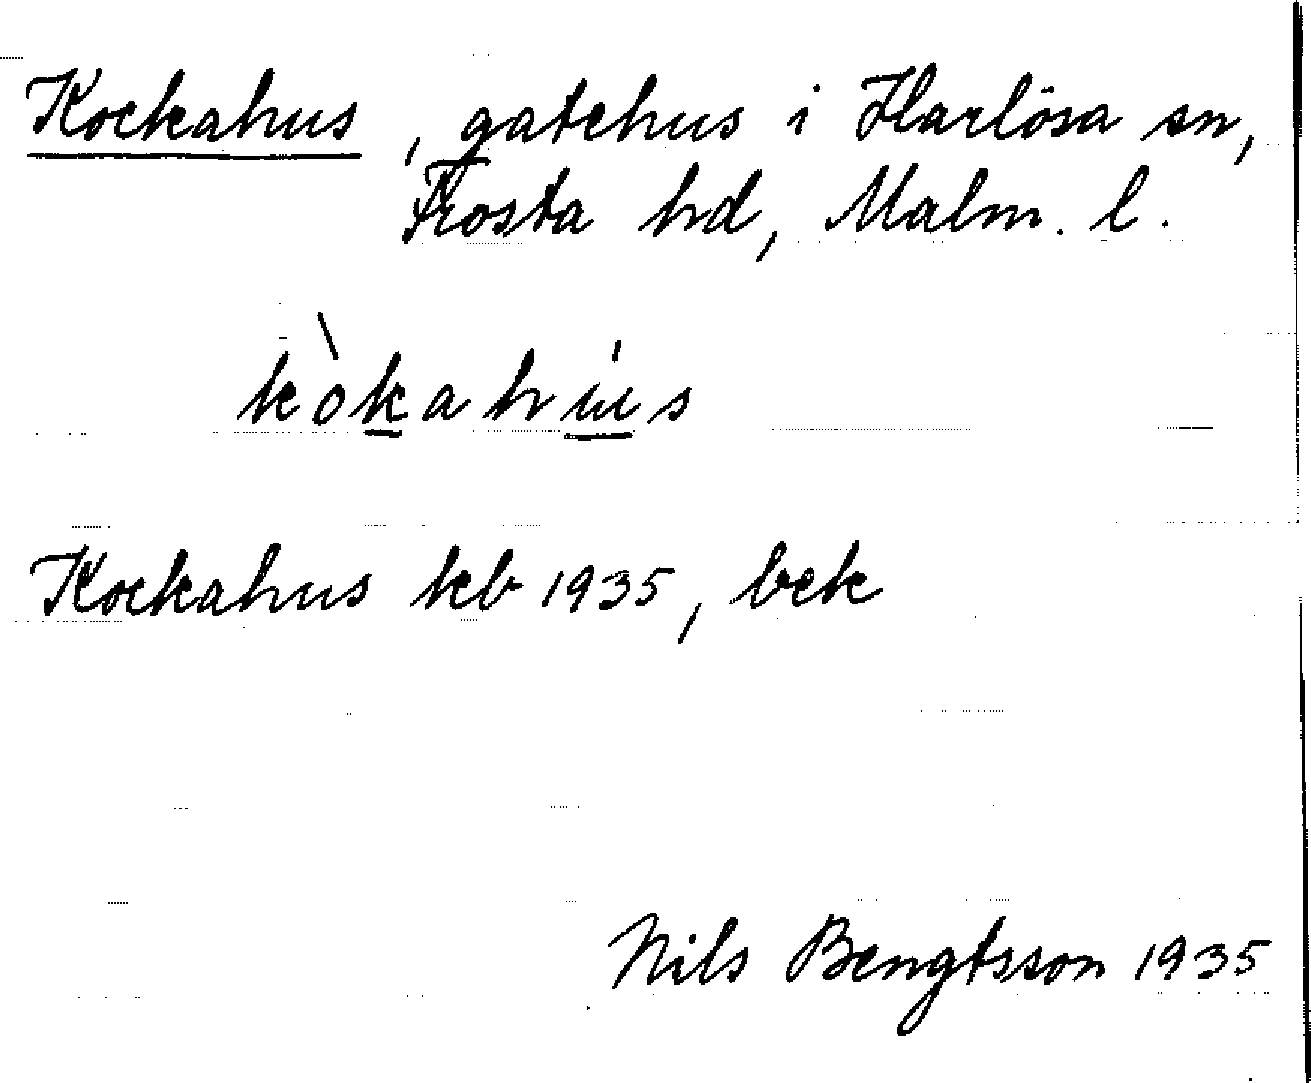 Kockahus, gatehus i Harlösa sn,
Frosta hd, Malm. l.
kòkahús
Kockahus kb 1935, bek
Nils Bengtsson 1935